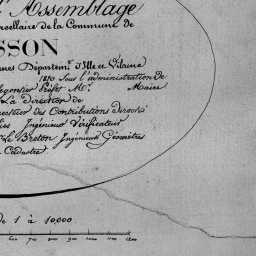 d'Assemblage
rcellaire de la Commune de
SSON
nnes Départem.t d'Ille et Vilaine
1810 Sous l'administration de
egontier Préfet Mr. Maire
La direction de
recteur des Contributions directes
Ingénieur Vérificateur
Le Breton Ingénieurs Géomètres
Cadastre
de 1 à 10,000